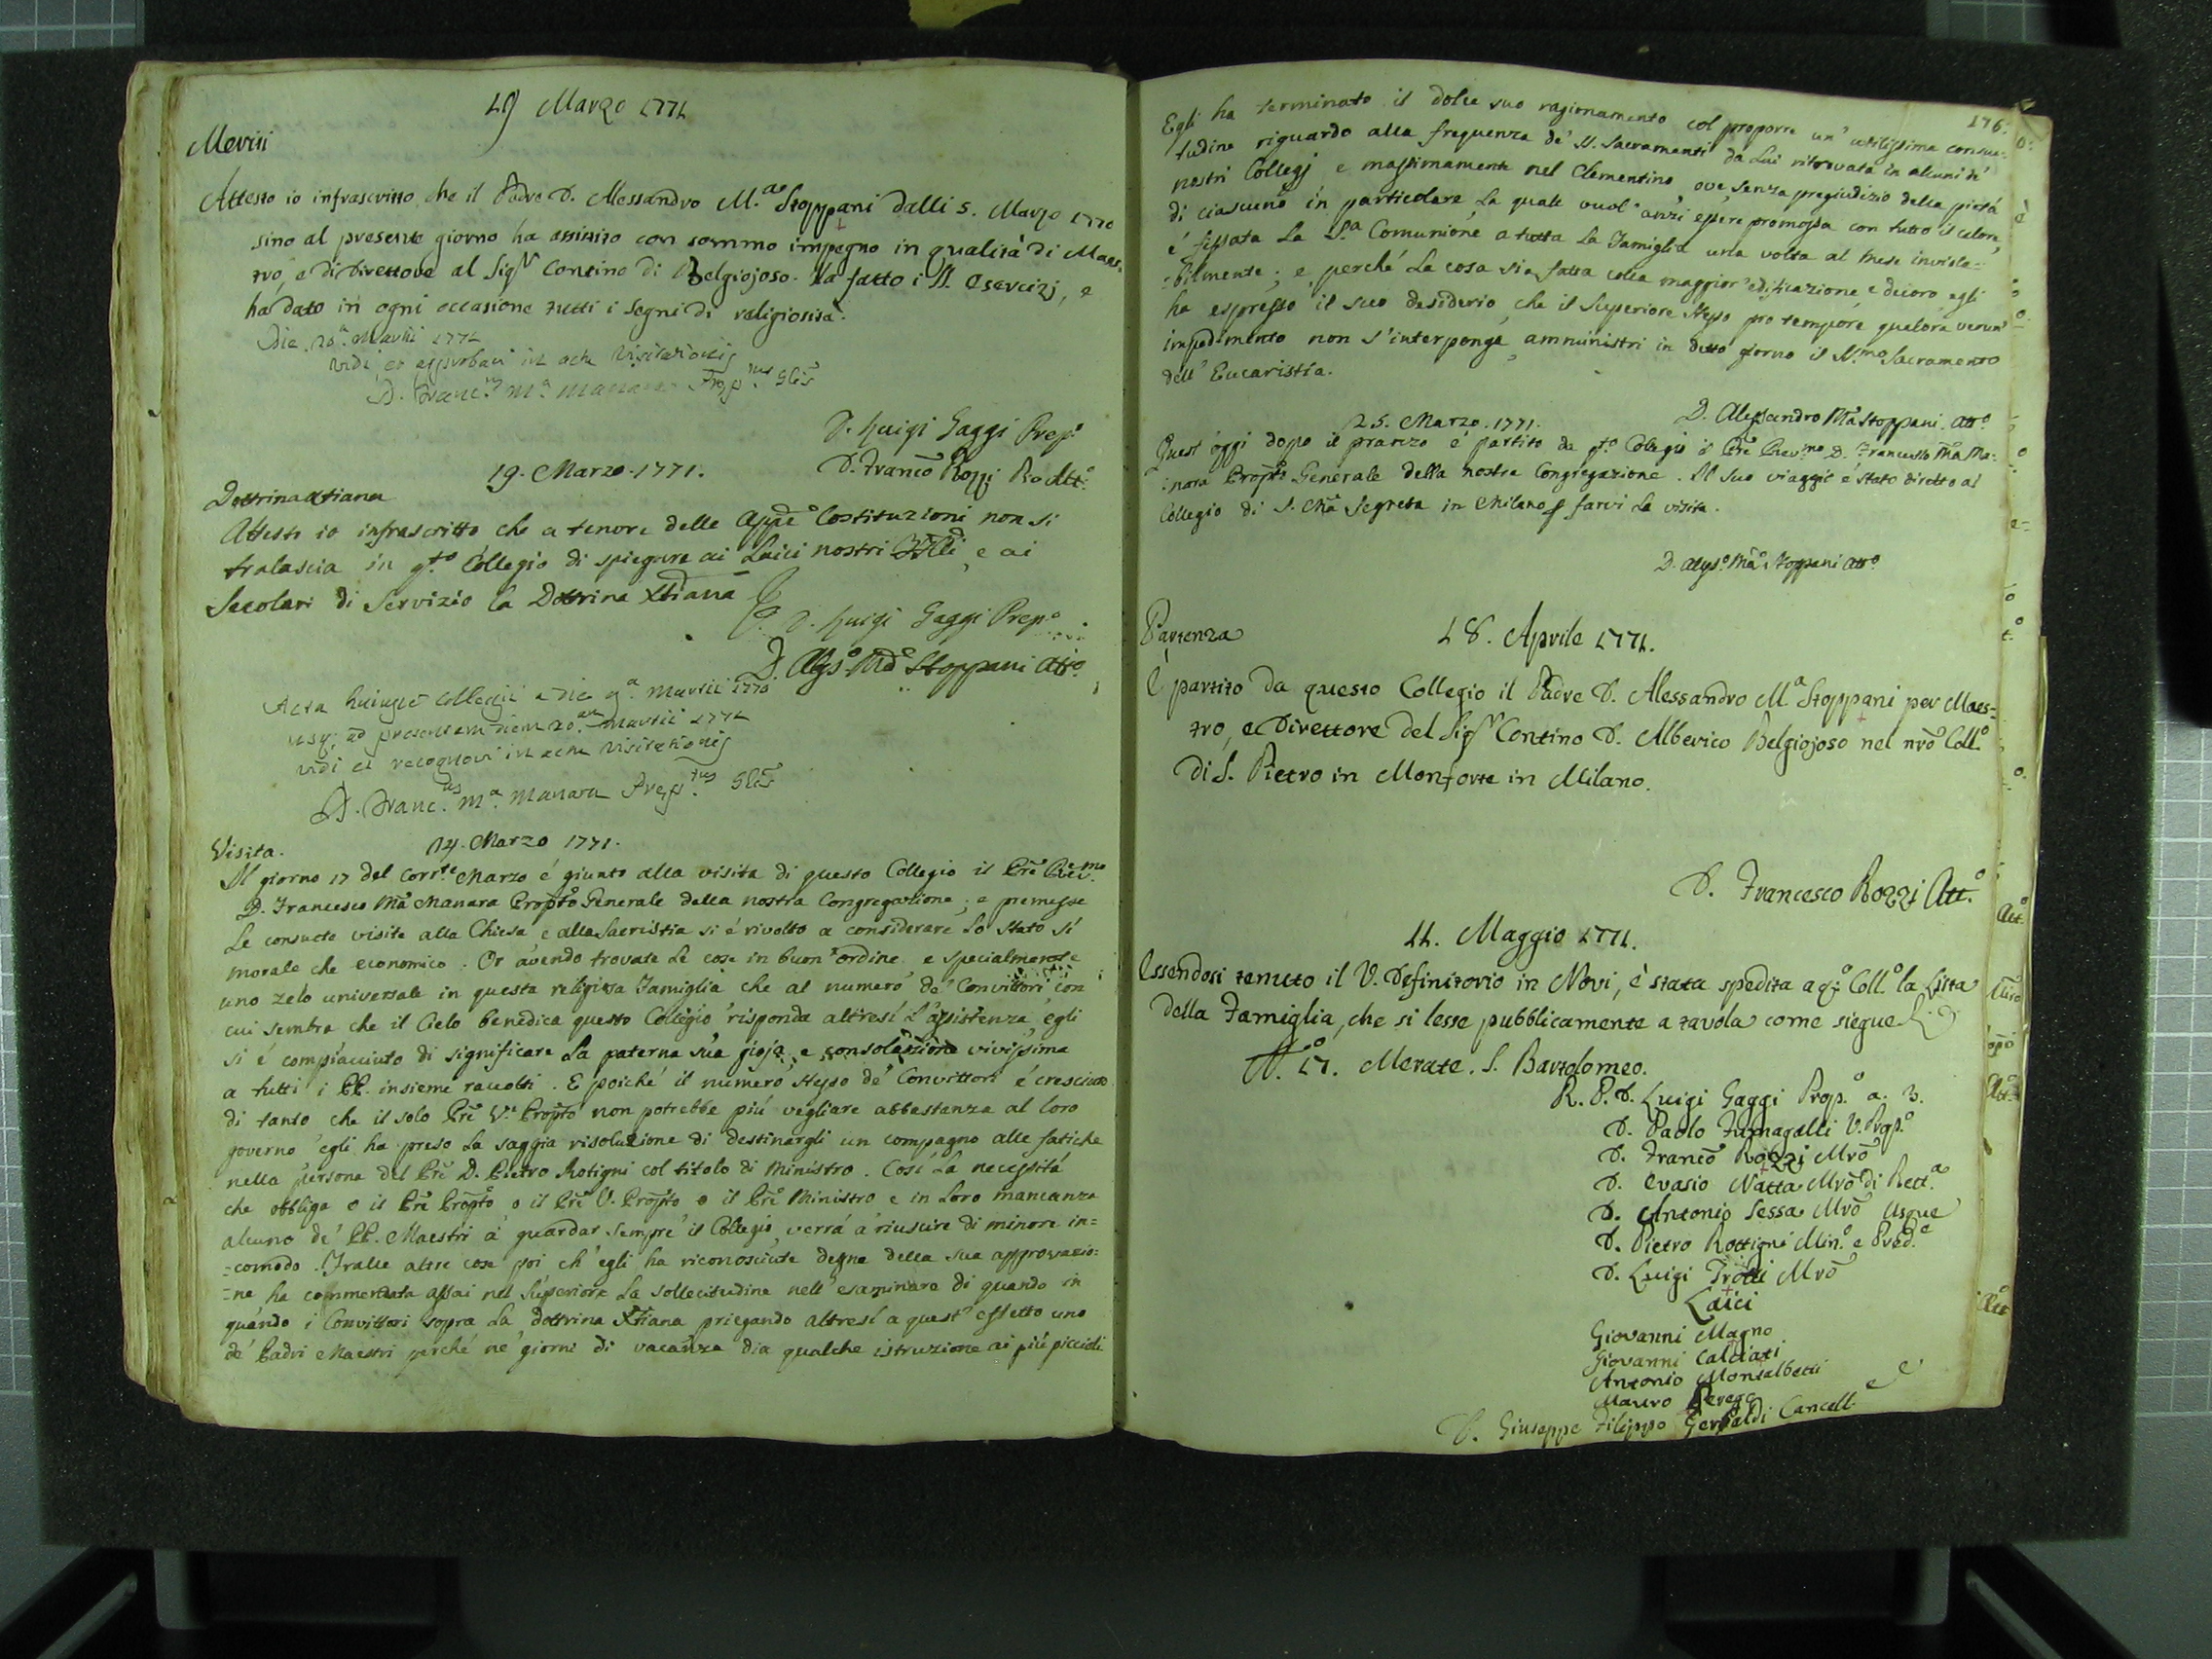 19 Marzo 1771
Meriti
Attesto io infrascritto che il Padre D. Alessandro M.a Stoppani dalli 5. Marzo 1770
sino al presente giorno ha assistito con sommo impegno in qualità di Maes-
tro, e di Direttore al Sigr Contino di Belgiojoso. Ha fatto i SS. Esercizj, e
ha dato in ogni occasione tutti i segni di religiosità.
Die 20.a Martii 1771
vidi et approbavi in actu Visitationis
D. Franc.us M.a Manara Prep.tus Glis
D. Luigi Gaggi Prep.o
D. Franco Rozzi Att.o
19. Marzo. 1771.
Dottrina Xtiana
Attesto io infrascritto che a tenore delle Costituzioni non si
tralascia in q.to Collegio di spiegare ai Laici nostri e ai
Secolari di Servizio la Dottrina Xtiana
D. Luigi Gaggi Prep.o
D. Aless.o Ma Stoppani Att.o
Acta hujusce Collegii a die 9.a Martii 1770
usq; ad presentem diem 20.am Martii 1771
vidi et recognovi in actu Visitationis
D. Franc.us M.a Manara Prep.tus Glis
Visita. 24. Marzo 1771.
Il giorno 17 del Corr.te Marzo é giunto alla visita di questo Collegio il Pre Rev.mo
D. Francesco Ma Manara Propto Generale della nostra Congregazione; e premesse
Le consuete visite alla Chiesa e alla Sacristia si é rivolto a considerare Lo Stato sí
morale che economico. Or avendo trovate Le cose in buon ordine e specialmente
uno zelo universale in questa religiosa Famiglia che al numero de' Convittori con
cui sembra che il Cielo benedica questo Collegio risponda altresí L'assistenza egli
si é compiacciuto di significare La paterna sua gioja e consolazione vivissima
a tutti i PP. insieme raccolti. E poiché il numero stesso de' Convittori é cresciuto
di tanto che il solo Pre V.e Propto non potrebbe piú vegliare abbastanza al loro
governo egli ha preso La saggia risoluzione di destinargli un compagno alle fatiche
nella persona del Pre D. Pietro Rotigni col titolo di Ministro. Cosí La necessitá
che obbliga o il Pre Propto o il Pre V. Propto o il Pre Ministro e in Loro mancanza
alcuno de' PP. Maestri a guardar sempre il Collegio verrá a riuscire di minore in=
=comodo. Tralle altre cose poi ch'egli ha riconosciute degne della sua approvazio=
=ne ha commendata assai nel Superiore La sollecitudine nell'esaminare di quando in
quando i Convittori sopra La dottrina Xtiana priegando altresí a quest'effetto uno
de' Padri Maestri perché ne' giorni di vacanza dia qualche istruzione ai piú piccioli
176.
Egli ha terminato il dolce suo ragionamento col proporre un'utilissima consue=
tudine riguardo alla frequenza de' SS. Sacramenti da Lui ritrovata in alcuni de'
nostri Collegj e massimamente nel Clementino ove senza pregiudizio della pietá
di ciascuno in particolare La quale vuol anzi essere promossa con tutto il calore
é fissata La S.a Comunione a tutta La Famiglia una volta al mese inviola=
=bilmente; e perché La cosa sia fatta colla maggior edificazione e decoro egli
ha espresso il suo desiderio che il Superiore stesso pro tempore qualora verun'
impedimento non s'interponga amministri in detto giorno il SS.mo Sacramento
dell'Eucaristía.
D. Alessandro Ma Stoppani. Att.o
25. Marzo. 1771.
Quest'oggi dopo il pranzo é partito da q.to Collegio il Pre Rev.mo D. Francesco Ma Ma=
=nara Propto Generale della nostra Congregazione. Il suo viaggio é stato diretto al
Collegio di S. Ma Segreta in Milano p farvi La visita.
D. Aless.o Ma Stoppani Att.o
Partenza 18. Aprile 1771.
È partito da questo Collegio il Padre D. Alessandro M.a Stoppani per Maes=
tro, e Direttore del Sigr Contino D. Alberico Belgiojoso nel nro Coll.o
di S. Pietro in Monforte in Milano.
D. Francesco Rozzi Att.o
11. Maggio 1771.
Essendosi tenuto il V. Definitorio in Novi, è stata spedita a q.o Coll.o la Lista
della Famiglia, che si lesse pubblicamente a tavola come siegue
N.o 17. Merate. S. Bartolomeo.
R. P. D. Luigi Gaggi Prop.o a. 3.
D. Paolo Fumagalli V. Prop.o
D. Franco Rozzi Mro
D. Evasio Natta Mro di Rett.a
D. Antonio Sessa Mro Usque
D. Pietro Rottigni Min.o e Pred.e
D. Luigi Trotti Mro
Laici
Giovanni Magno
Giovanni Calciati
Antonio Montalbetti
Mauro Perego
D. Giuseppe Filippo Gerbaldi Cancell.e